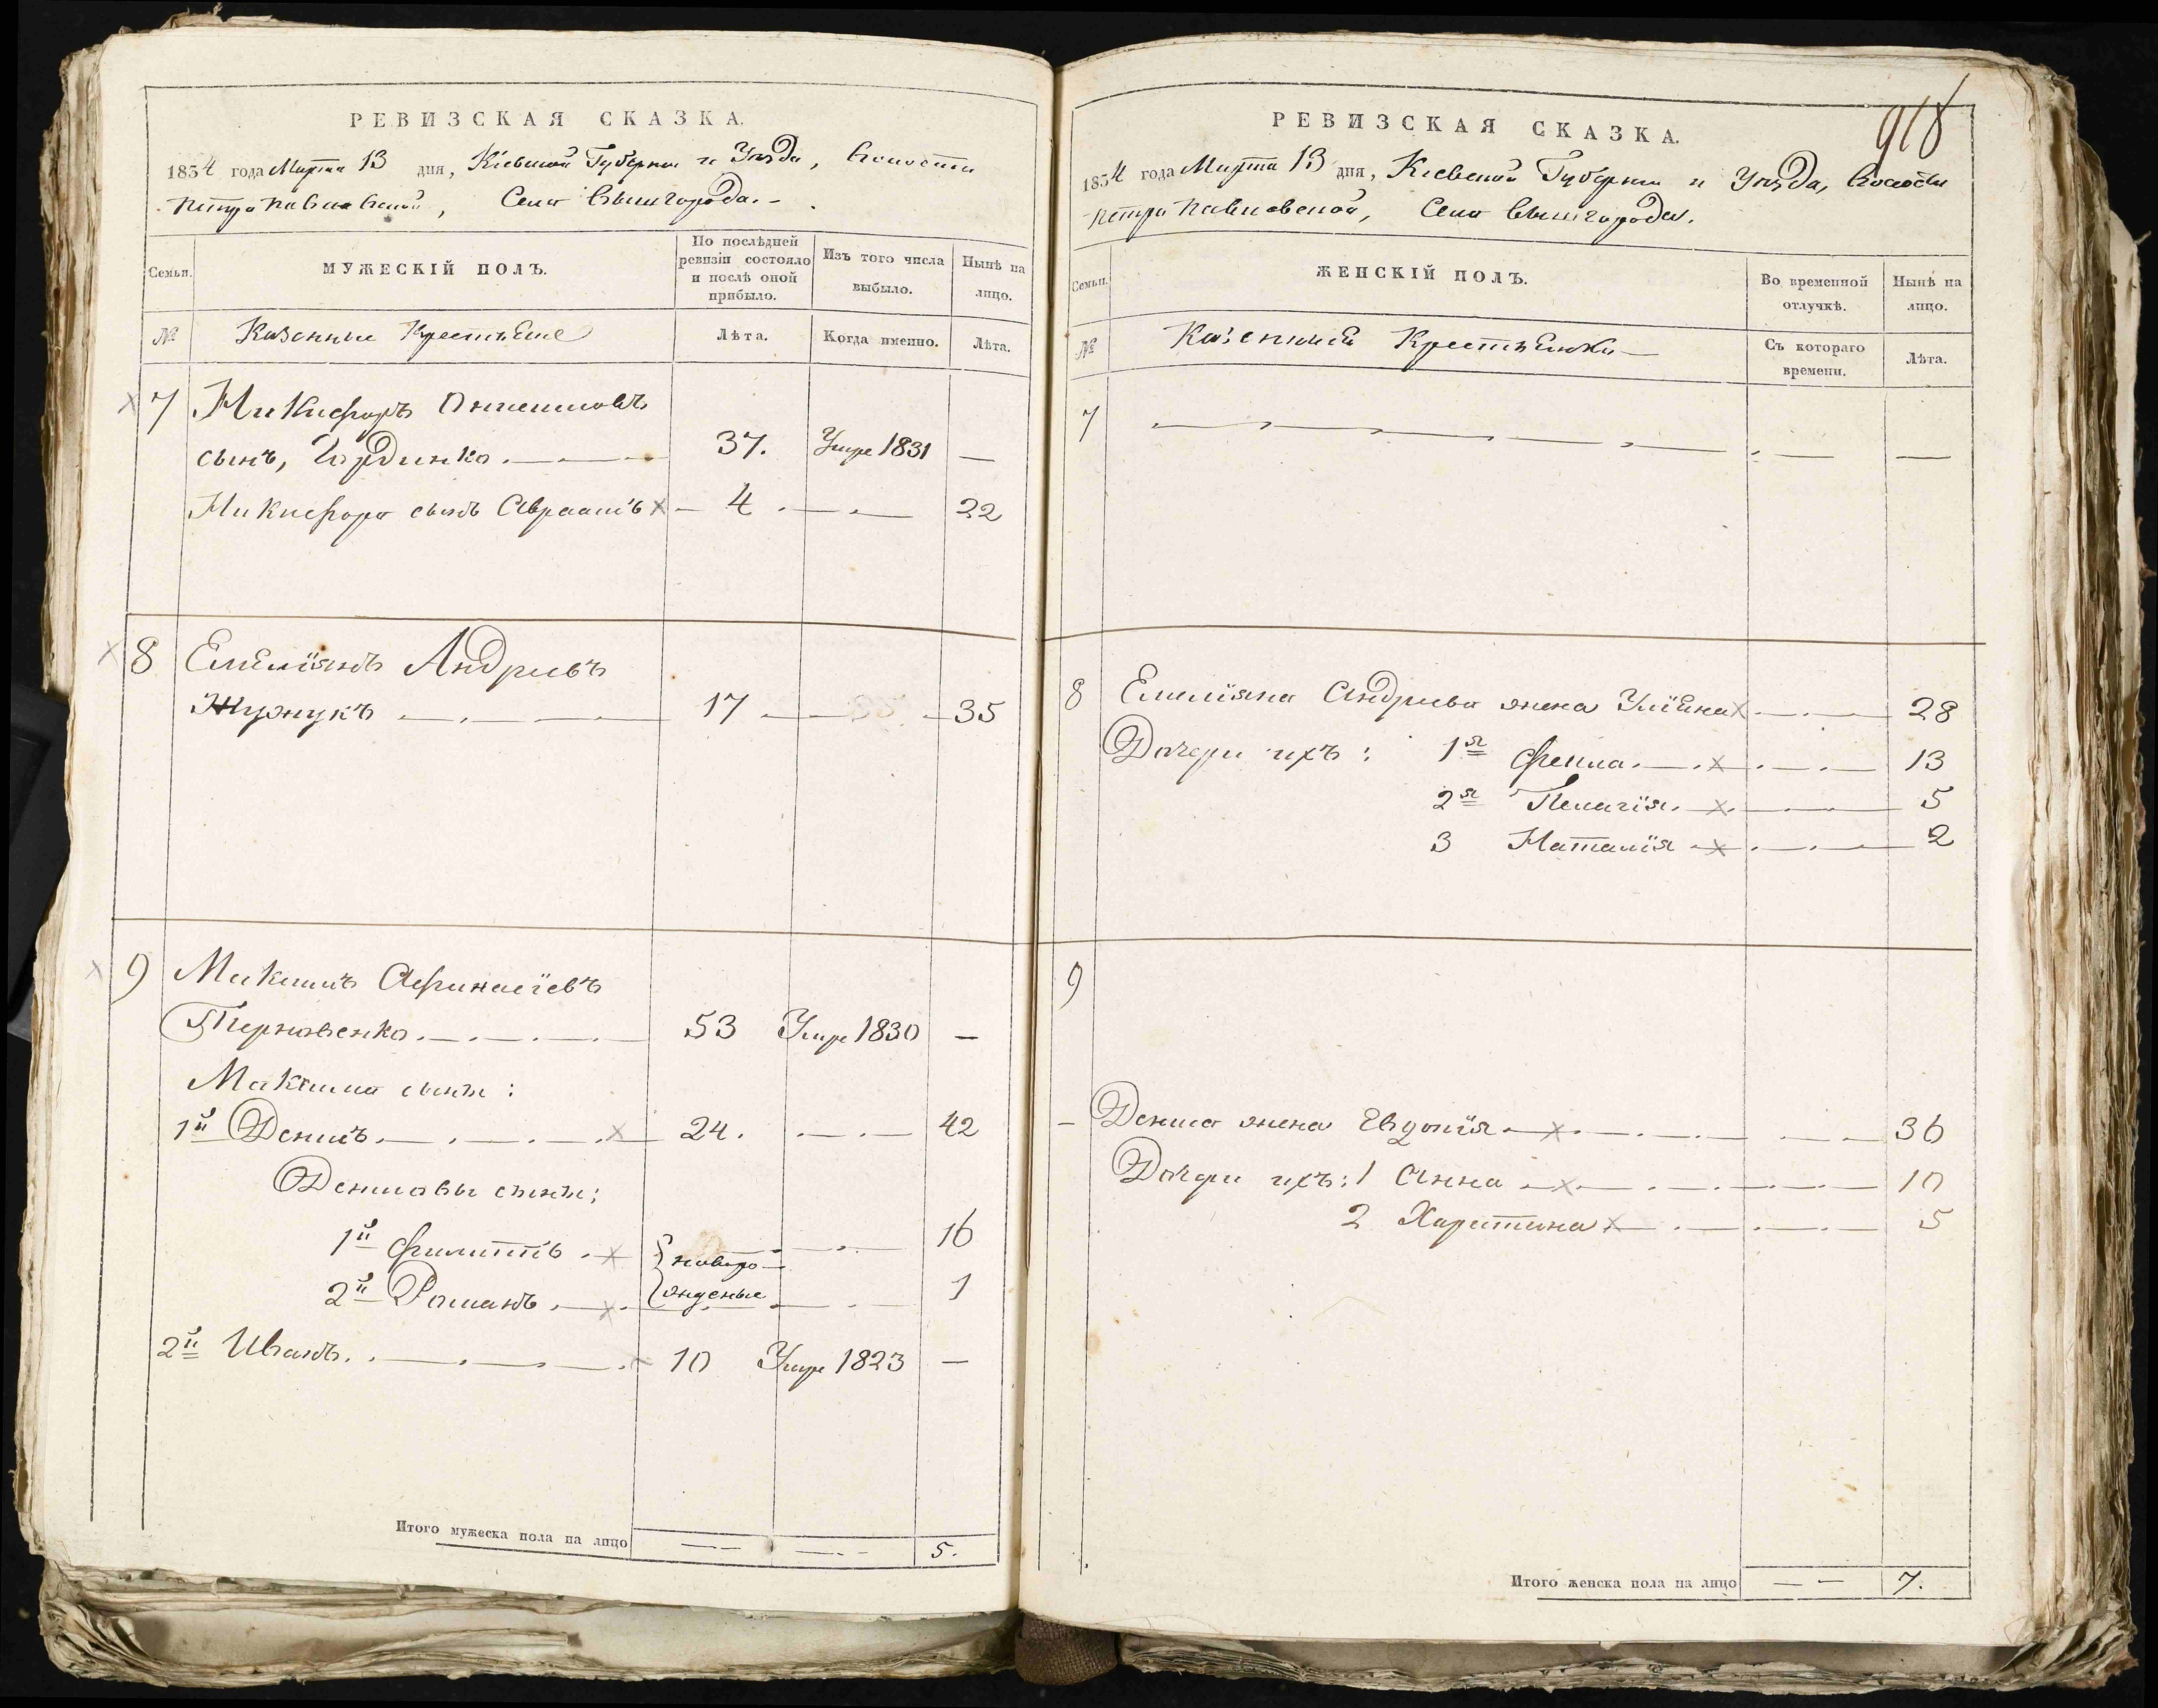 РЕВИЗСКАЯ СКАЗКА.
1854 года Марта 13 дня, Кіевской Губерніи и Уѣзда, Волости
Петро Павловской, Села Вышгорода.
Семьи.
МУЖЕСКІЙ ПОЛЪ.
По послѣдней
ревизіи состояло
и послѣ оной
прибыло.
Изъ того числа
выбыло.
Нынѣ на
лицо.
№
Казенные Крестьяне
Лѣта.
Когда именно.
Лѣта.
7 Никифоръ Онисимовъ
сынъ, Гординко. 37. Умре 1831 —
Никифора сынъ Авраамъ 4 22
8 Емелїянъ Андріевъ
17 35
9 Максимъ Афанасїевъ
Терновенко. 53 Умре 1830 —
Максима сыны:
1й Денисъ. 24. 42
Денисовы сыны:
1й Филиппъ. 16
новоро-
2й Романъ. жденые 1
2й Иванъ. 10 Умре 1823 —
Итого мужеска пола на лицо 5.
918
РЕВИЗСКАЯ СКАЗКА.
1854 года Марта 13 дня, Кіевской Губерніи и Уѣзда, Волости
Петро Павловской, Села Вышгорода.
Семьи.
ЖЕНСКІЙ ПОЛЪ.
Во временной
отлучкѣ.
Нынѣ на
лицо.
№
Казенные Крестьянки
Съ котораго
времени.
Лѣта.
7
8 Емелїяна Андріева жена Улїяна 28
Дочери ихъ: 1я Фекла. 13
2я Пелагїя. 5
3 Наталїя 2
9
Дениса жена Евдокїя 36
Дочери ихъ: 1 Анна 10
2 Харитина 5
Итого женска пола на лицо 7.